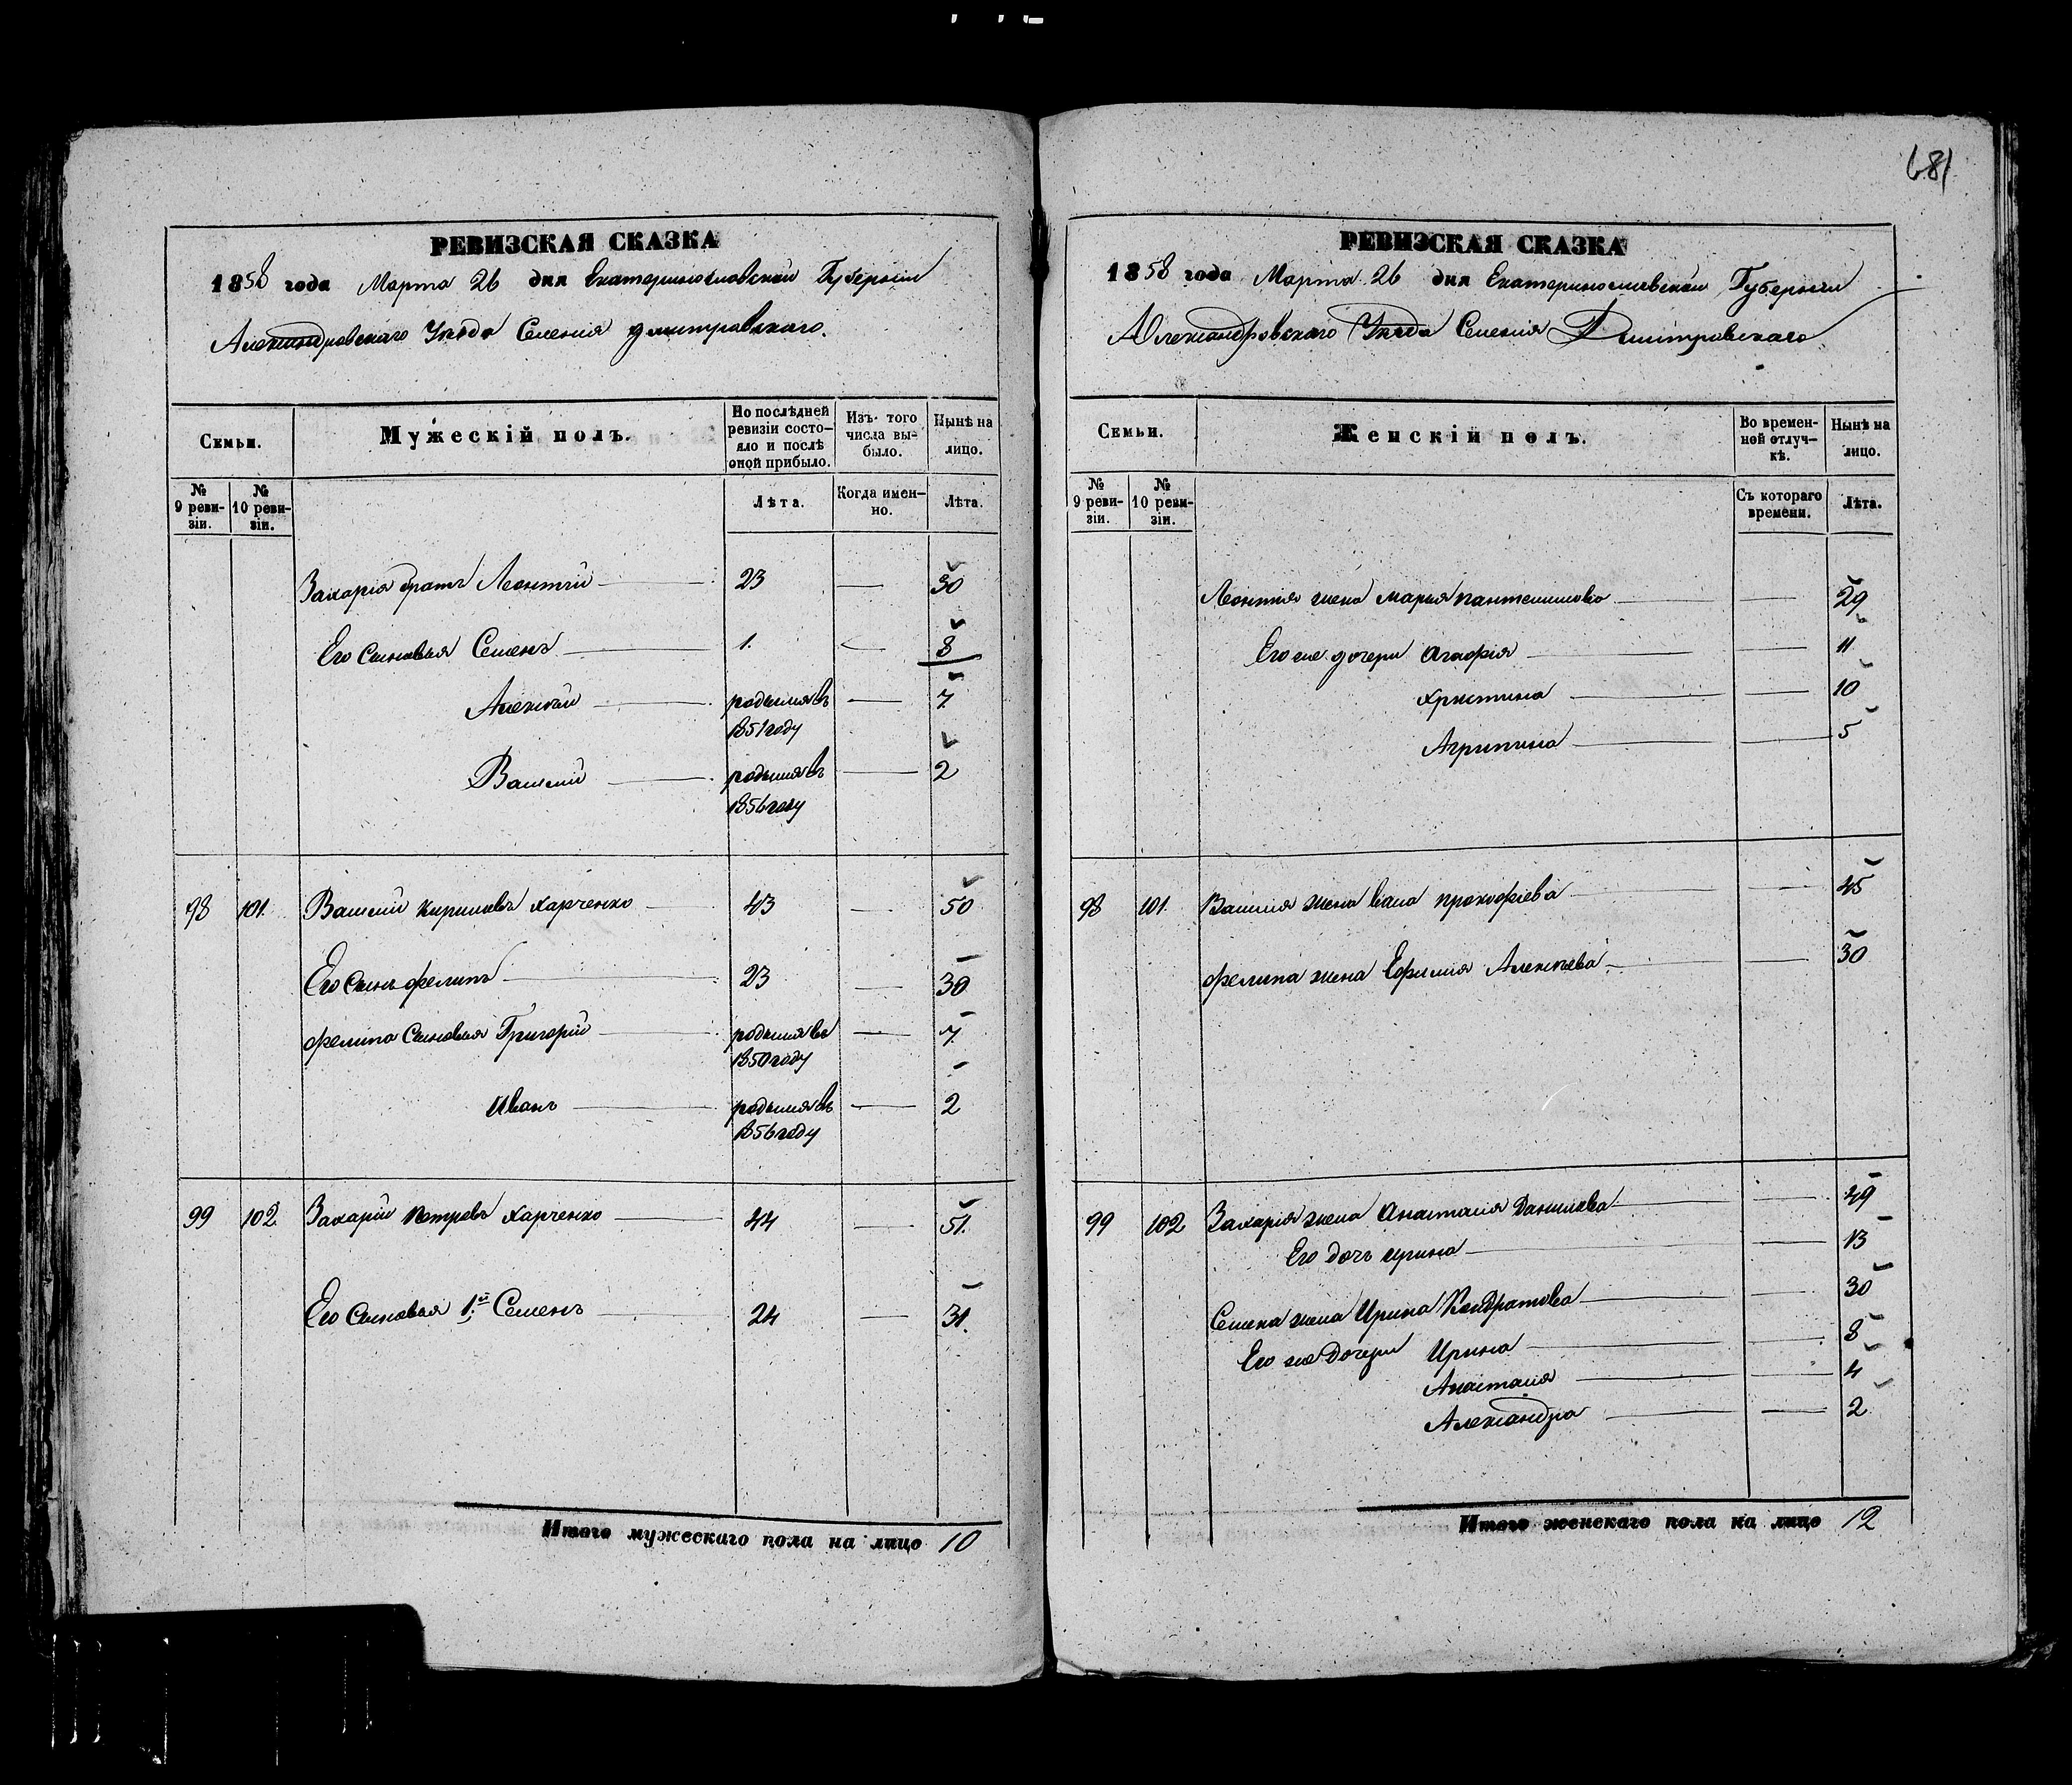 681
РЕВИЗСКАЯ СКАЗКА
1858 года Марта 26 дня Екатеринославской Губернии
Александровскаго Уѣзда Селенія Дмитровскаго.
Семьи.
Мужескій полъ.
По послѣдней ревизіи состояло и послѣ оной прибыло.
Изъ того числа выбыло.
Нынѣ на лицо.
№ 9 ревизіи.
№ 10 ревизіи.
Лѣта.
Когда именно.
Лѣта.
Захарія братъ Леонтій — 23 — 30
Его Сыновья Семенъ — 1. — 8
Алексѣй — родился въ 1851 году — 7
Василій — родился въ 1856 году — 2
98 101. Василій Кириловъ Харченко — 43 — 50
Его Сынъ Филипъ — 23 — 30
Филипа Сыновья Григорій — родился въ 1850 году — 7
Иванъ — родился въ 1856 году — 2
99 102 Захарій Петровъ Харченко — 44 — 51.
Его Сыновья 1й Семенъ — 24 — 31.
Итого мужескаго пола на лицо 10
РЕВИЗСКАЯ СКАЗКА
1858 года Марта 26 дня Екатеринославской Губерніи
Александровскаго Уѣзда Селенія Дмитровскаго
Семьи.
Женскій полъ.
Во временной отлучкѣ.
Нынѣ на лицо.
№ 9 ревизіи.
№ 10 ревизіи.
Съ котораго времени.
Лѣта.
Леонтія жена Марья — 29
Его же дочери Агафія — 11
Христина — 10
Агрипина — 5
98 101. Василія жена Прокофіева — 45
Филипа жена Ефимія Алексѣева — 30
99 102 Захарія жена Анастасія Данилова — 49
Его дочь Ирина — 13
Семена жена Ирина Кондратова — 30
Его же Дочери Ирина — 8
Анастасія — 4
Александра — 2
Итого женскаго пола на лицо 12